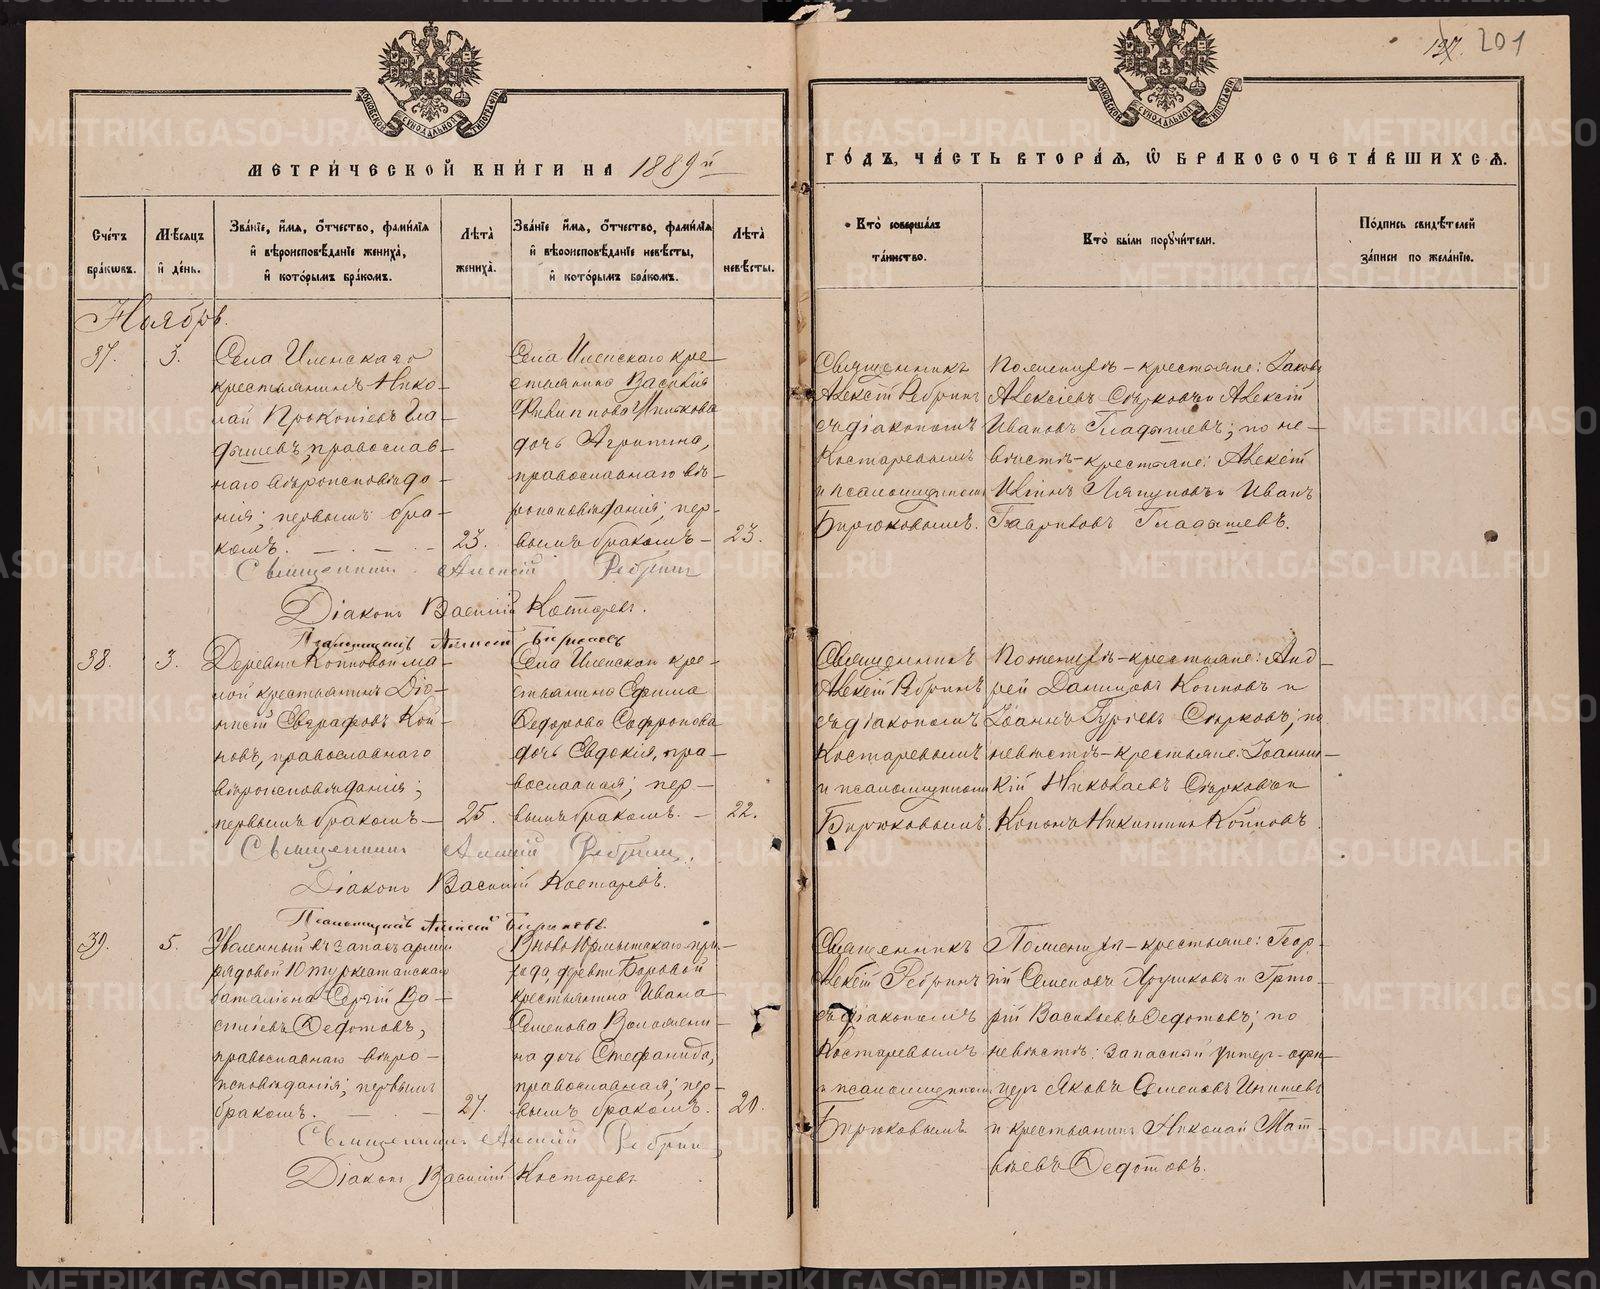 201
МЕТРИ́ЧЕСКОЙ КНИ́ГИ НА 1889й
ГО́ДЪ, ЧА́СТЬ ВТОРА́Я, Ѿ БРАКОСОЧЕТА́ВШИХСЯ.
Сче́тъ бра́кѡвъ.
Мѣ́сяцъ и҆ де́нь.
Зва́нїе, и҆́мя, ѻ҆́тчество, фами́лїя
и҆ вѣроисповѣ́данїе жениха̀,
и҆ кото́рымъ бра́комъ.
Лѣта̀ жениха̀.
Зва́нїе и҆́мя, ѻ҆́тчество, фами́лїя
и҆ вѣроисповѣ́данїе невѣ́сты,
и҆ кото́рымъ бра́комъ.
Лѣта̀ невѣ́сты.
Кто̀ соверша́лъ та́инство.
Кто̀ бы́ли порꙋчи́тели.
По́дпись свидѣ́телей
за́писи по жела́нїю.
Ноябрь.
37.
3.
Села Иленскаго
крестьянинъ Нико-
лай Прокопіевъ Гла-
дышевъ, православ-
наго вѣроисповѣда-
нія; первымъ бра-
комъ.
23.
Села Иленскаго кре-
стьянина Василія
Филиппова
дочь Агрипина,
православнаго вѣ-
роисповѣданія; пер-
вымъ бракомъ-
23.
Священникъ
Алексій Ребринъ
съ діакономъ
Костаревымъ
и псаломщикомъ
Бирюковымъ.
По женихѣ - крестьяне: Іаковъ
Алексіевъ Сѣрковъ и Алексій
Ивановъ Гладышевъ; по не-
вѣстѣ - крестьяне: Алексій
Ляпуновъ и Иванъ
Гавриловъ Гладышевъ.
Священникъ Алексій Ребринъ
Діаконъ Василій Костаревъ.
Псаломщикъ Алексій Бирюковъ
38.
3.
Деревни Копповой ма-
лой крестьянинъ Діо-
нисій Евграфовъ Коп-
повъ, православнаго
вѣроисповѣданія;
первымъ бракомъ-
25.
Села Иленскаго кре-
стьянина Ефима
Ѳедорова Софронова
дочь Евдокія, пра-
вославная; пер-
вымъ бракомъ. -
22.
Священникъ
Алексій Ребринъ
съ діакономъ
Костаревымъ
и псаломщикомъ
Бирюковымъ.
По женихѣ - крестьяне: Анд-
рей Даниловъ Копповъ и
Іоаннъ Гуріевъ Сѣрковъ; по
невѣстѣ - крестьяне: Іоанни-
кій Николаевъ Сѣрковъ и
Кононъ Никитинъ Копповъ
Священникъ Алексій Ребринъ
Діаконъ Василій Костаревъ.
Псаломщикъ Алексій Бирюковъ.
39.
5.
Уволенный въ запасъ арміи
рядовой 10 туркестанскаго
баталіона Сергій Ва-
силіевъ Ѳедотовъ,
православнаго вѣро-
исповѣданія; первымъ
бракомъ.
27.
Вново Юрмытскаго при-
хода, деревни Боровой
крестьянина Ивана
Семенова
дочь Стефанида,
православная; пер-
вымъ бракомъ.
20.
Священникъ
Алексій Ребринъ
съ діакономъ
Костаревымъ
и псаломщикомъ
Бирюковымъ
По женихѣ - крестьяне: Геор-
гій Семеновъ и Григо-
рій Васильевъ Ѳедотовъ; по
невѣстѣ: запасный унтер-офи-
церъ Яковъ Семеновъ
и крестьянинъ Николай Мат-
вѣевъ Ѳедотовъ.
Священникъ Алексій Ребринъ
Діаконъ Василій Костаревъ
METRIKI.GASO-URAL.RU